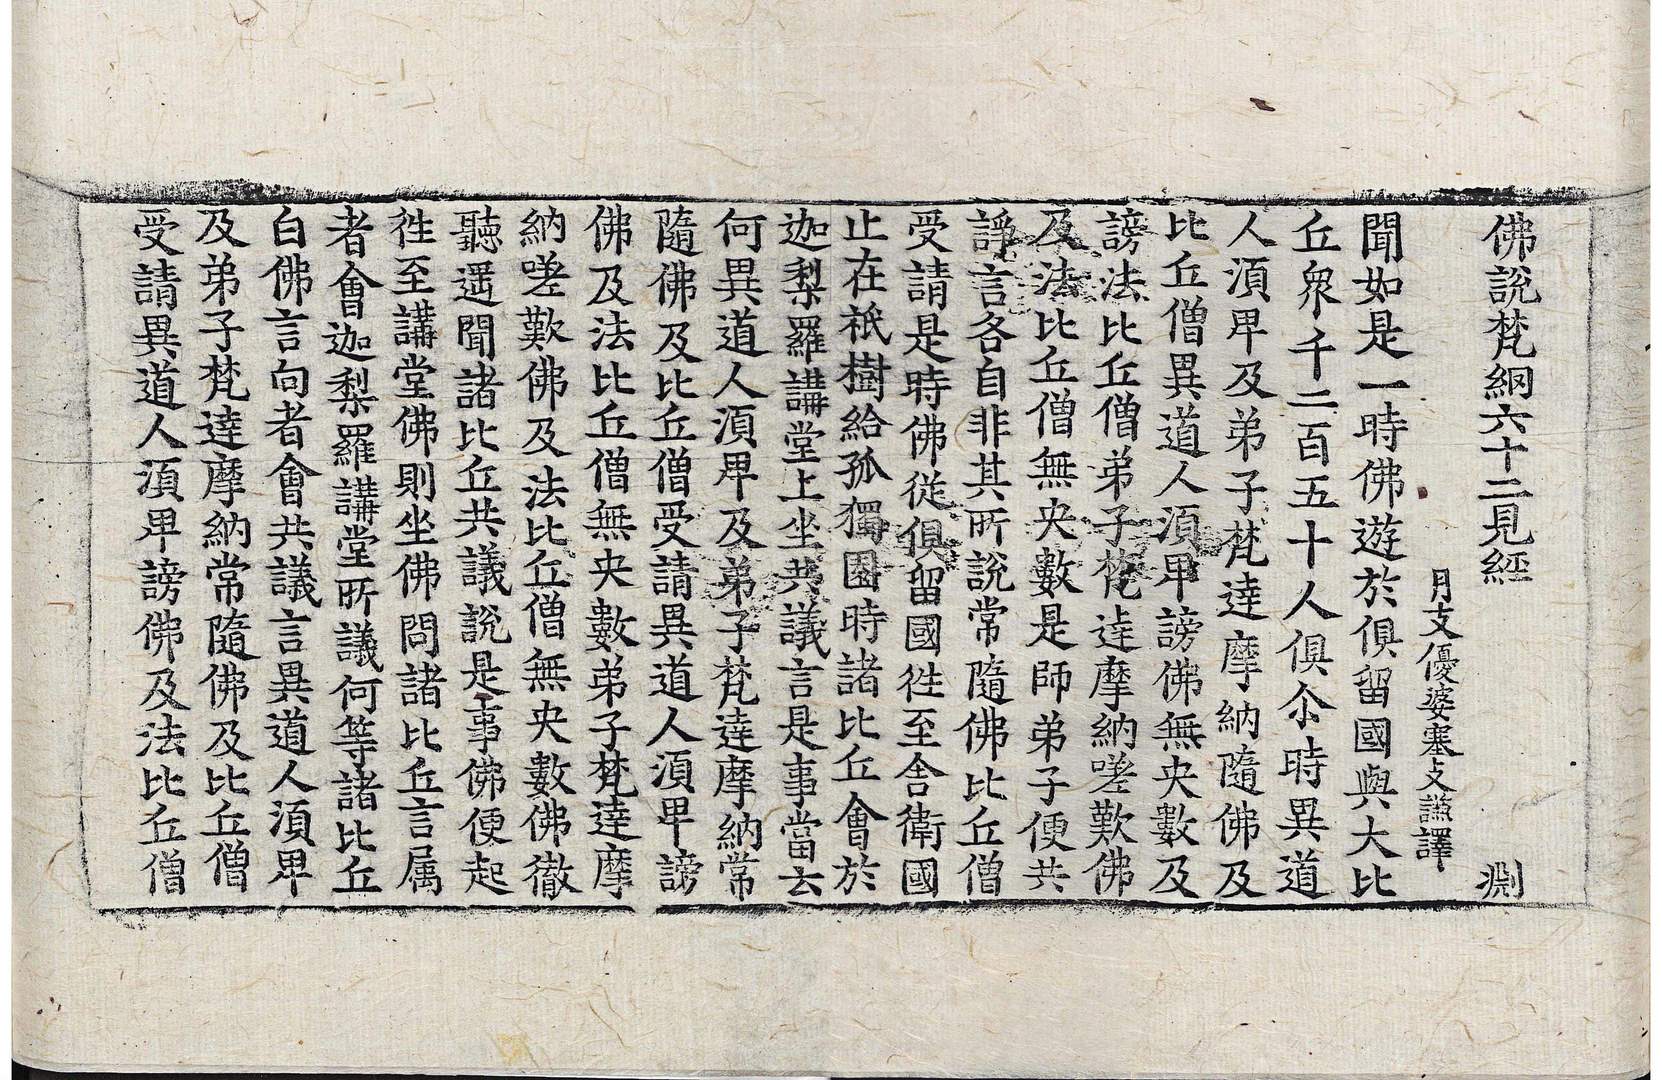 佛說梵網六十二見經 淵
月支優婆塞支謙譯
聞如是一時佛遊於俱留國與大比
丘衆千二百五十人俱尒時異道
人湏卑及弟子梵達摩納隨佛及
比丘僧異道人湏卑謗佛無央數及
謗法比丘僧弟子梵達摩納嗟歎佛
及法比丘僧無央數是師弟子便共
諍言各自非其所說常隨佛比丘僧
受請是時佛從俱留國徃至舍衛國
止在祇樹給孤獨園時諸比丘會於
迦梨羅講堂上坐共議言是事當云
何異道人湏卑及弟子梵達摩納常
隨佛及比丘僧受請異道人湏卑謗
佛及法比丘僧無央數弟子梵達摩
納嗟歎佛及法比丘僧無央數佛徹
聽遥聞諸比丘共議說是事佛便起
徃至講堂佛則坐佛問諸比丘言属
者會迦梨羅講堂所議何等諸比丘
白佛言向者會共議言異道人湏卑
及弟子梵達摩納常隨佛及比丘僧
受請異道人湏卑謗佛及法比丘僧